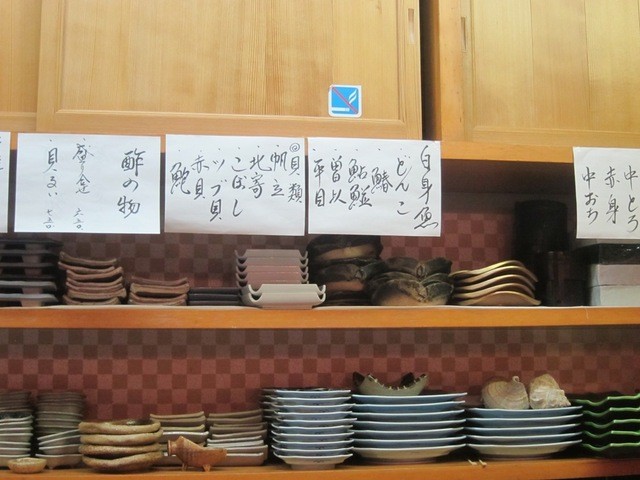 中とろ
赤身
中おち
白身魚
どんこ
鰆
鮎鱚
曽以
平目
@貝類
帆立
北寄
こぼし
ツブ貝
赤貝
鮑
酢の物
貝るい